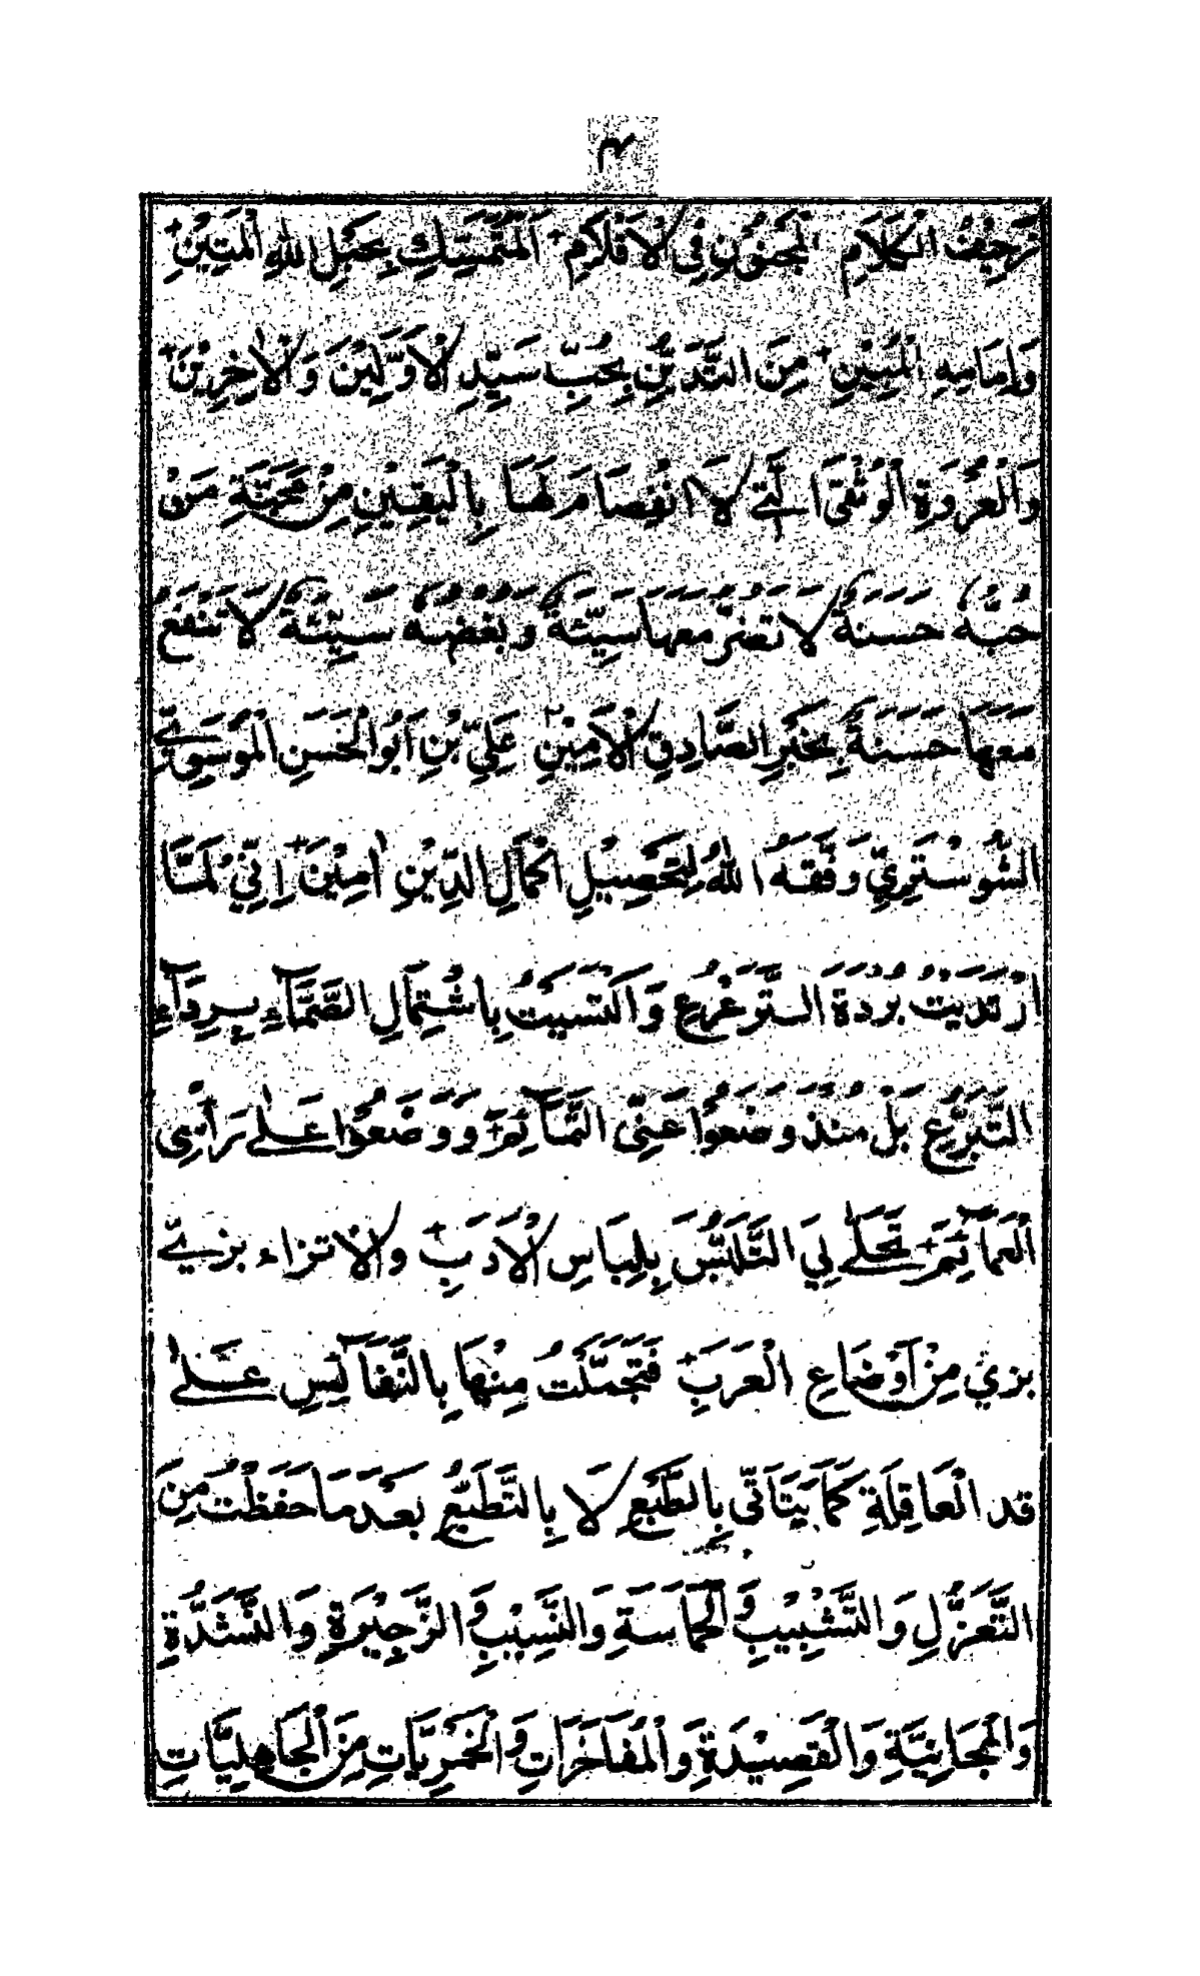 ٣
تَرجِيفُ الكَلَامِ المَجنُونِ فِي الْاَقْلَامِ المُتَمَسِّكِ بِحَبْلِ اللهِ المَتِيْنِ
وَاِمَامِهِ المُبِيْنِ مِنَ التَّدَيُّنِ بِحُبِّ سَيِّدِ الْاَوَّلِيْنَ وَالْاٰخِرِيْنَ
وَالْعُرْوَةِ الْوُثْقىَ الَّتِي لَا انْفِصَامَ لَهَا بِالْيَقِيْنِ مِنْ مَحَبَّةِ مَنْ
حُبُّهُ حَسَنَةٌ لَا تَضُرُّ مَعَهَا سَيِّئَةٌ وَبُغْضُهُ سَيِّئَةٌ لَا تَنْفَعُ
مَعَهَا حَسَنَةٌ بِخَبَرِ الصَّادِقِ الْاَمِيْنِ عَلِيِّ بْنِ اَبُو الْحَسَنِ المُوْسَوِيّ
الشُّوسْتَرِيِّ وَفَّقَهُ اللهُ لِتَحْصِيْلِ اكْمَالِ الدِّيْنِ اٰمِيْنَ اِنِّيْ لَمَّا
ارْتَدَيْتُ بُرْدَةَ التَّرَعْرُعِ وَاكْتَسَيْتُ بِاشْتِمَالِ الصَّمَّآءِ بِرِدَآءِ
التَّبَرُّعِ بَلْ مُنْذُ وَضَعُوْا عَنِّى التَّمَآئِمَ وَوَضَعُوْا عَلٰى رَأْسِى
الْعَمَآئِمَ تَحَلّٰى لِيَ التَّلَبُّسَ بِلِبَاسِ الْاَدَبِ والاتزاء بزيّ
بزي مِنْ اَوْضَاعِ الْعَرَبِ فَتَجَمَّلْتُ مِنْهَا بِالنَّفَآئِسِ عَلٰى
قد الْعَاقِلَةِ كَمَا يَتَاَتّى بِالطَّبْعِ لَا بِالتَّطَبُّعِ بَعْدَ مَا حَفَظْتُ مِنَ
التَّغَزُّلِ وَالتَّشْبِيْبِ وَالْحَمَاسَةِ وَالنَّسِيْبِ وَالزَّجِيْرَةِ وَالنَّشْدَةِ
وَالْمَجَانِيَّةِ وَالْقَصِيْدَةِ وَالْمُفَاخَرَاتِ وَالْخَمْرِيَّاتِ مِنَ الْجَاهِلِيَّاتِ